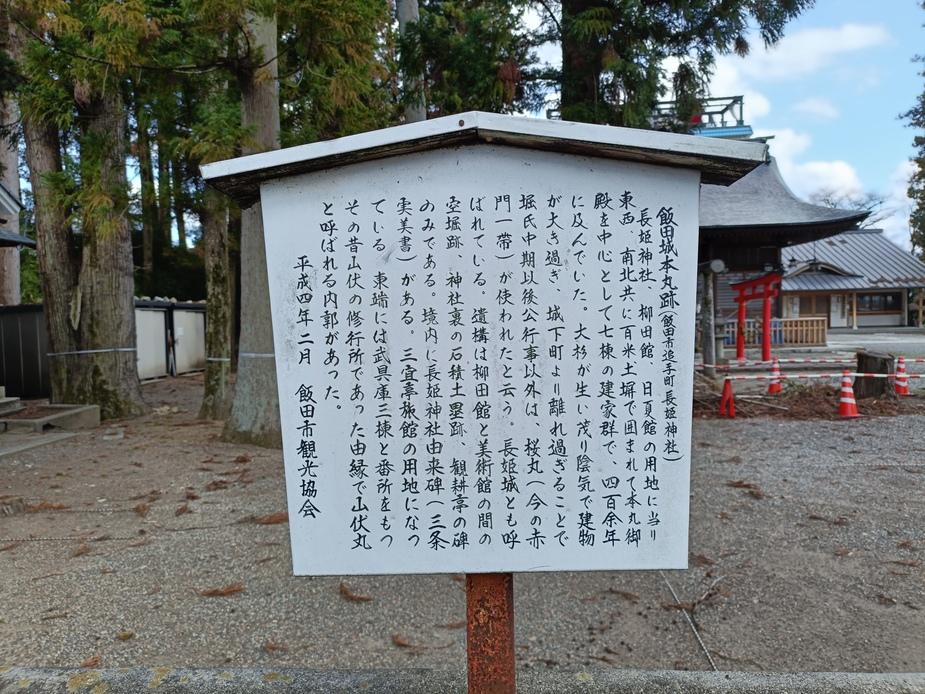 飯田城本丸跡(飯田市追手町 長姫神社)
長姫神社、柳田館、日夏館の用地に当り
東西、南北共に百米土塀で囲まれて本丸御
殿を中心として七棟の建家群で、四百余年
に及んでいた。大杉が生い茂り陰気で建物
が大き過ぎ、城下町より離れ過ぎることで
堀氏中期以後公行事以外は、桜丸(今の赤
門一帯)が使われたと云う。長姫城とも呼
ばれている。遺構は柳田館と美術館の間の
空堀跡、神社裏の石積土塁跡、観耕亭の碑
のみである。境内に長姫神社由来碑(三条
実美書)がある。三宜亭旅館の用地になつ
ている 東端には武具庫三棟と番所をもつ
その昔山伏の修行所であった由縁で山伏丸
と呼ばれる内郭があった。
平成四年二月 飯田市観光協会